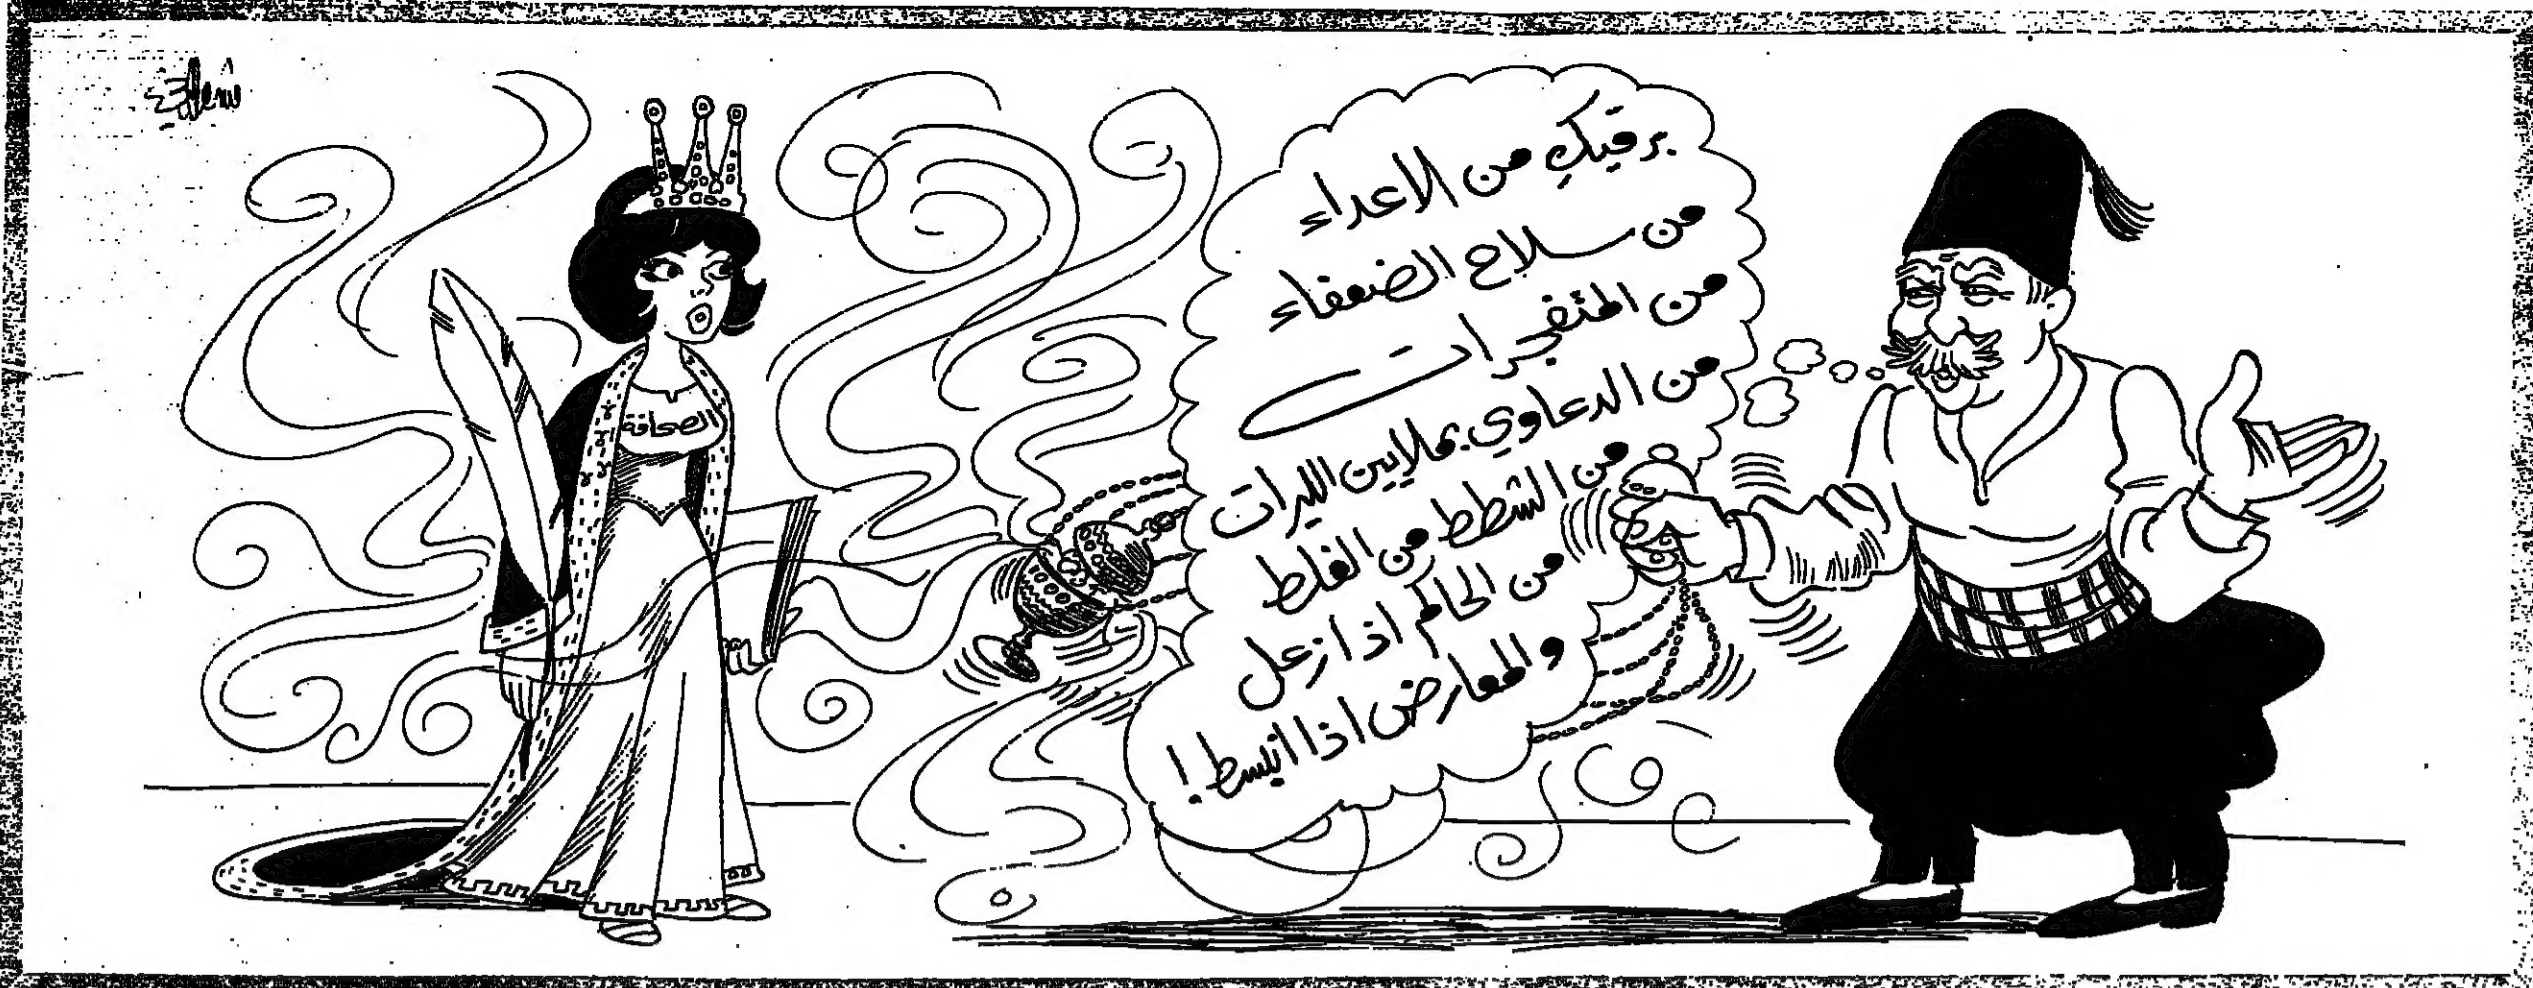 برقيك من الاعداء
من سلاح الضعفاء
من المتفجرات
من الدعاوي بملايين الليرات
من الشطط من الغلط
من الحاكم اذا زعل
والمعارض اذا انبسط !
الصحافة